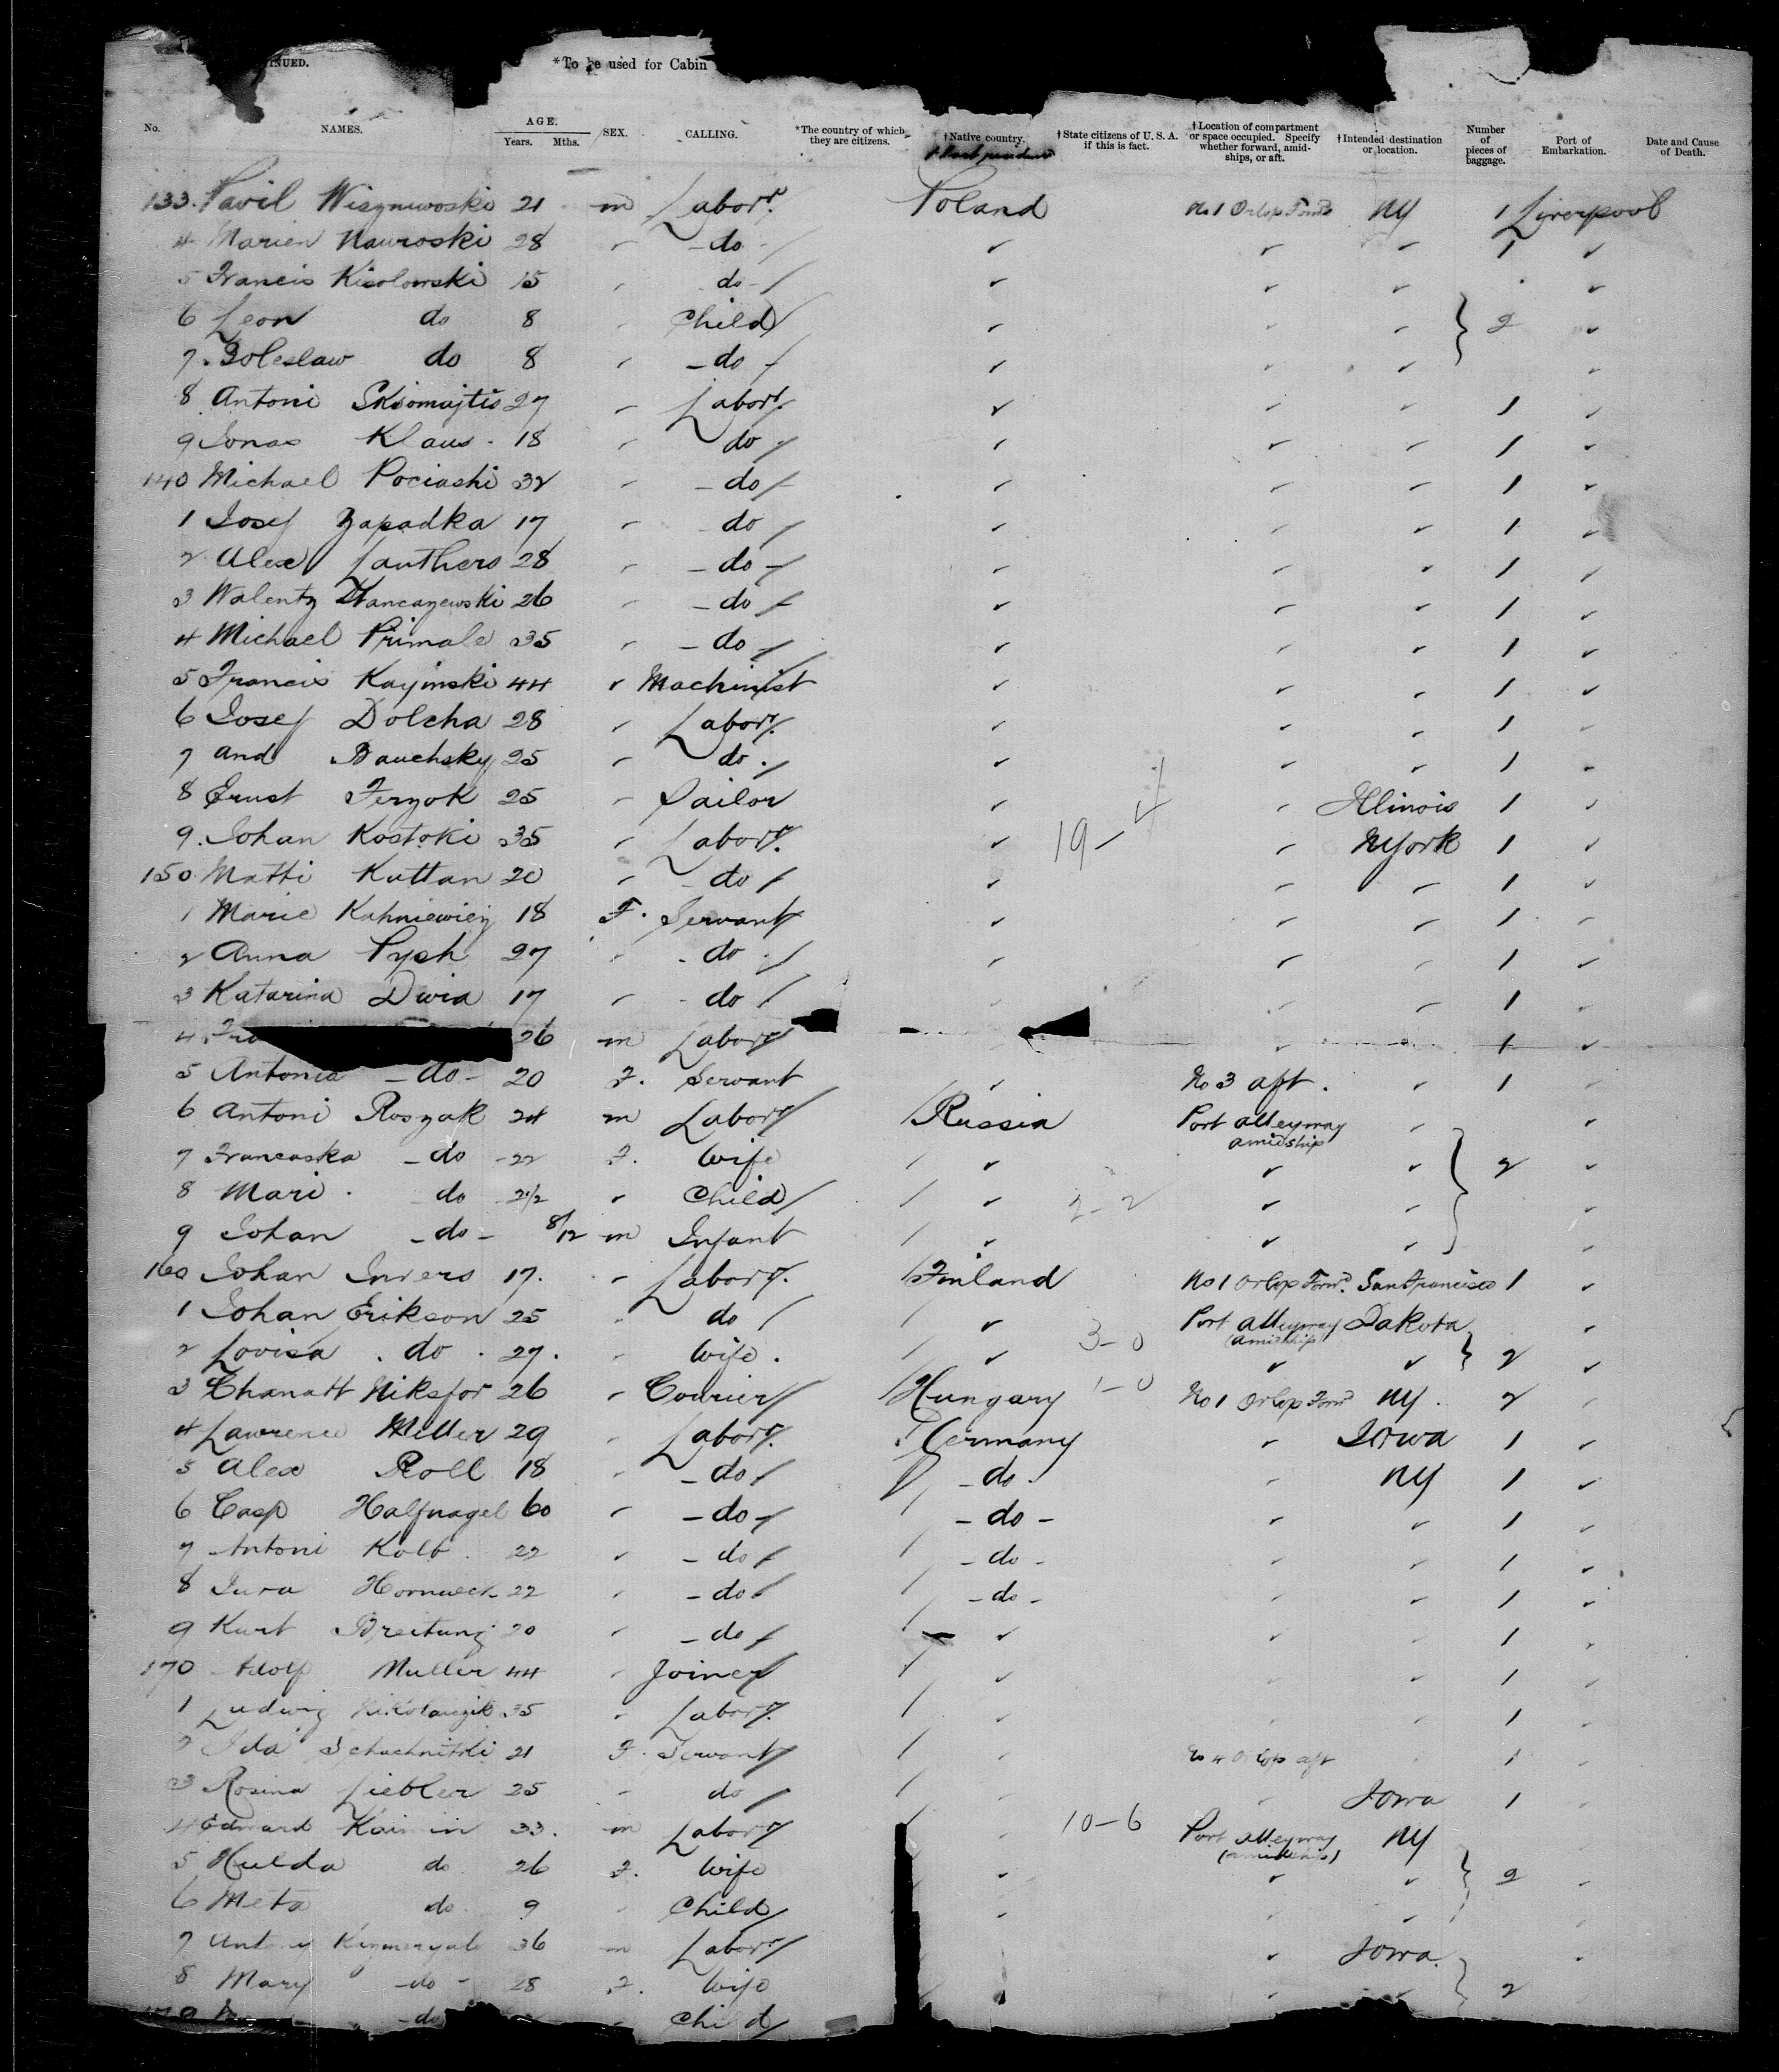 INUED. *To be used for Cabin
No. NAMES. AGE. Years. Mths. SEX. CALLING. *The country of which they are citizens. †Native country. †State citizens of U. S. A. if this is fact. †Location of compartment or space occupied. Specify whether forward, amidships, or aft. †Intended destination or location. Number of pieces of baggage. Port of Embarkation. Date and Cause of Death.
133. Pavil Wiszniwoski 21 m Laborr. Poland No 1 Orlop Forwd NY 1 Liverpool
4 Marien Nawroski 28 " -do- " " " 1 "
5 Francis Kisolowski 15 " do- " " " "
6 Leon do 8 " Child " " " } 2 "
7. Boleslaw do 8 " -do- " " " "
8 Antoni 27 " Laborr. " " " 1 "
9 Jonas Klaus. 18 " do " " " 1 "
140 Michael Pociashi 32 " -do " " " 1 "
1 Josef Zapadka 17 " do " " " 1 "
2 Alex Lauthers 28 " -do- " " " 1 "
3 Walenty 26 " -do " " " 1 "
4 Michael Primale 35 " -do- " " " 1 "
5 Francis Kayinski 44 " Machinist " " " 1 "
6 Josef Dolcha 28 " Laborr. " " " 1 "
7 And Bauchsky 25 " do. " " " 1 "
8 Ernst Feryok 25 " Sailor " " Illinois 1 "
9. Johan Kostoki 35 " Laborr. " 19- " NYork 1 "
150 Matti Kuttan 20 " -do " " " 1 "
1 Marie 18 F. Servant " " " 1 "
2 Anna Pysh 27 " -do " " " 1 "
3 Katarina Dwia 17 " -do " " " 1 "
4 Fra 26 m Laborr " " 1 "
5 Antonia -do- 20 F. Servant " No 3 aft. " 1 "
6 Antoni Roszak 24 m Laborr Russia Port alleyway amidship " "
7 Francaska -do -22 F. Wife " " " } 2 "
8 Mari. do -2 1/2 " Child " 2-2 " " "
9 Johan -do- 8/12 m Infant " " " "
160 Johan Invers 17. " Laborr. Finland No 1 Orlop Forwd. San Francisco 1 "
1 Johan Erikson 25 " do " Port alleyway (amidship) Dakota "
2 Lovisa. do. 27. " Wife. " 3-0 " " } 2 "
3 Chanatt Niksfor 26 " Courier Hungary 1-0 No 1 Orlop Forwd NY. 2 "
4 Lawrence Miller 29 " Laborr. Germany " Iowa 1 "
5 Alex Roll 18 " -do -do- " NY 1 "
6 Casp Halfnagel 60 " -do- -do- " " 1 "
7 Antoni Kolb. 22 " -do -do- " " 1 "
8 Jura Hornweck 22 " -do -do- " " 1 "
9 Kurt Breitung 20 " -do " " " 1 "
170 Adolf Muller 44 " Joiner " " " 1 "
1 Ludwig 35 " Laborr. " " " 1 "
2 Ida 21 F. Servant " No 4 Orlop aft " 1 "
3 Rosina Liebler 25 " do " " Iowa 1 "
4 Edward 33. m Laborr " 10-6 Port alleyway (amidship) NY
5 Hulda do 26 F. Wife " " " } 2 "
6 Meta do. 9 " Child " " "
7 36 m Laborr " " Iowa. "
8 Mary -do- 28 F. Wife " " " } 2 "
179 -do Child